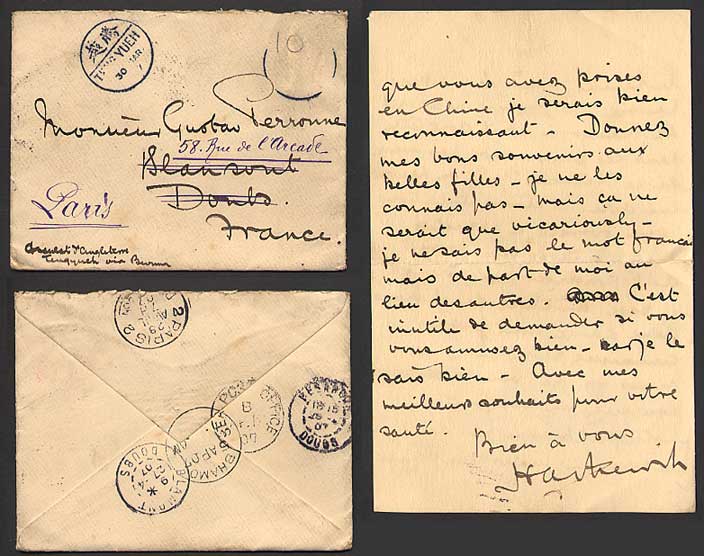 騰越
TENGYUEH
30 MAR
10
Monsieur Gustav Perronne
58. Rue de l'Arcade
Blamont
Doubs
Paris
France.
Consulat d'Angleterre
Tengyueh via Burma
que vous avez prises
en Chine je serais bien
reconnaissant - Donnez
mes bons souvenirs aux
belles filles - je ne les
connais pas - mais ça ne
serait que vicariously -
je ne sais pas le mot francais
mais de part de moi au
lieu des autres. C'est
inutile de demander si vous
vous amusez bien - car je le
sais bien - Avec mes
meilleurs souhaits pour votre
santé.
Bien à vous
PARIS 2
29
AVRIL
OFFICE
BHAMO
DOUBS
BLAMONT
DOUBS